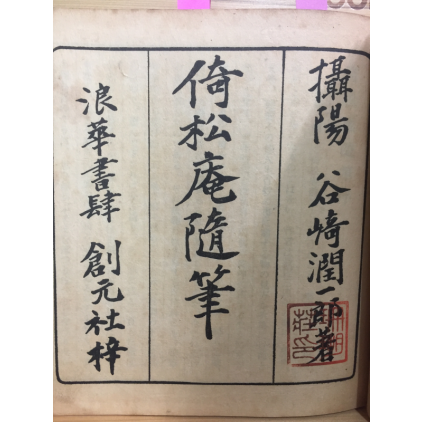 攝陽 谷崎潤一郎著
倚松庵隨筆
浪華書肆 創元社梓